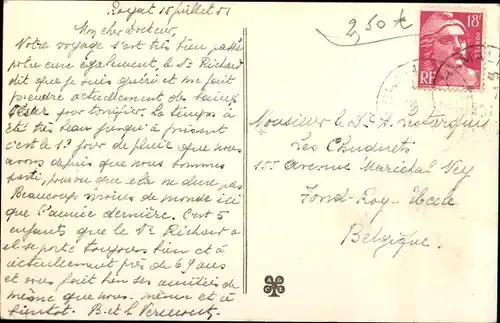 Royat 15 juillet 51
Mon cher Docteur,
Notre voyage s'est très bien passé
cure également, le Dr Richard
dit que je suis guéri et me fait
prendre actuellement de
pour tonifier. Le temps a
été très beau jusqu'à présent
c'est le 1er jour de pluie que nous
avons depuis que nous sommes
parti, pourvu que cela ne dure pas
Beaucoup moins de monde ici
que l'année dernière. C'est 5
enfants que le Dr Richard a
il se porte toujours bien et a
actuellement près de 69 ans
et vous fait bien ses amitiés de
même que nous. et à
bientôt. B. et L.
2,50 €
18F
POSTES
RF
Monsieur le Dr A.
Les
155 Avenue Maréchal Ney
Fond-Roy-Uccle
Belgique.